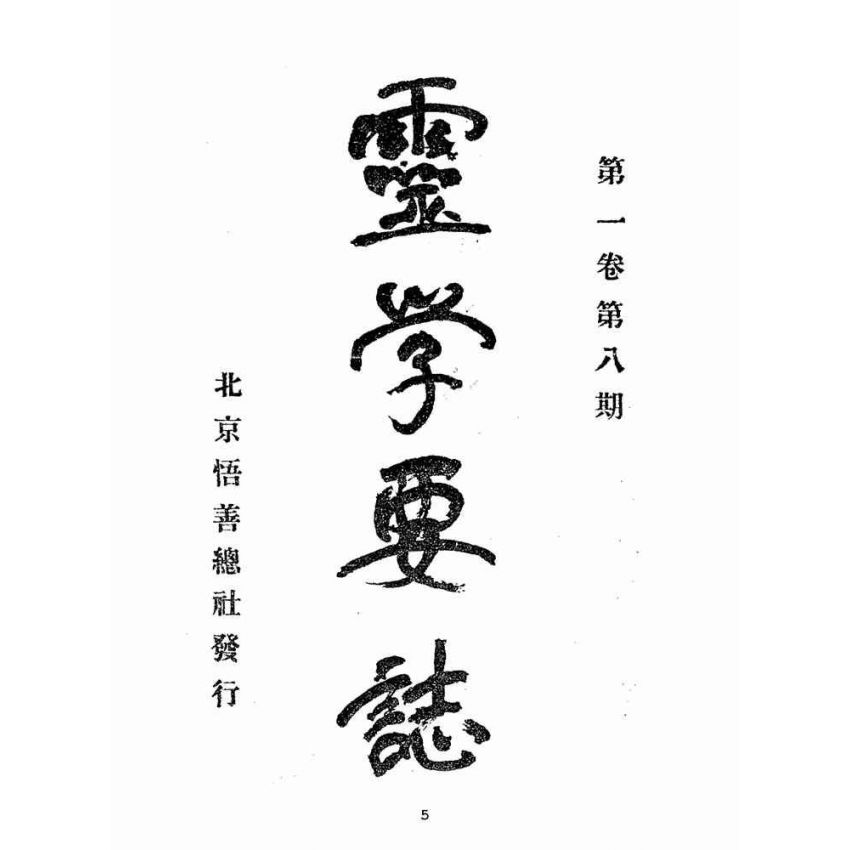 第一卷第八期
靈学要誌
北京悟善總社發行
5